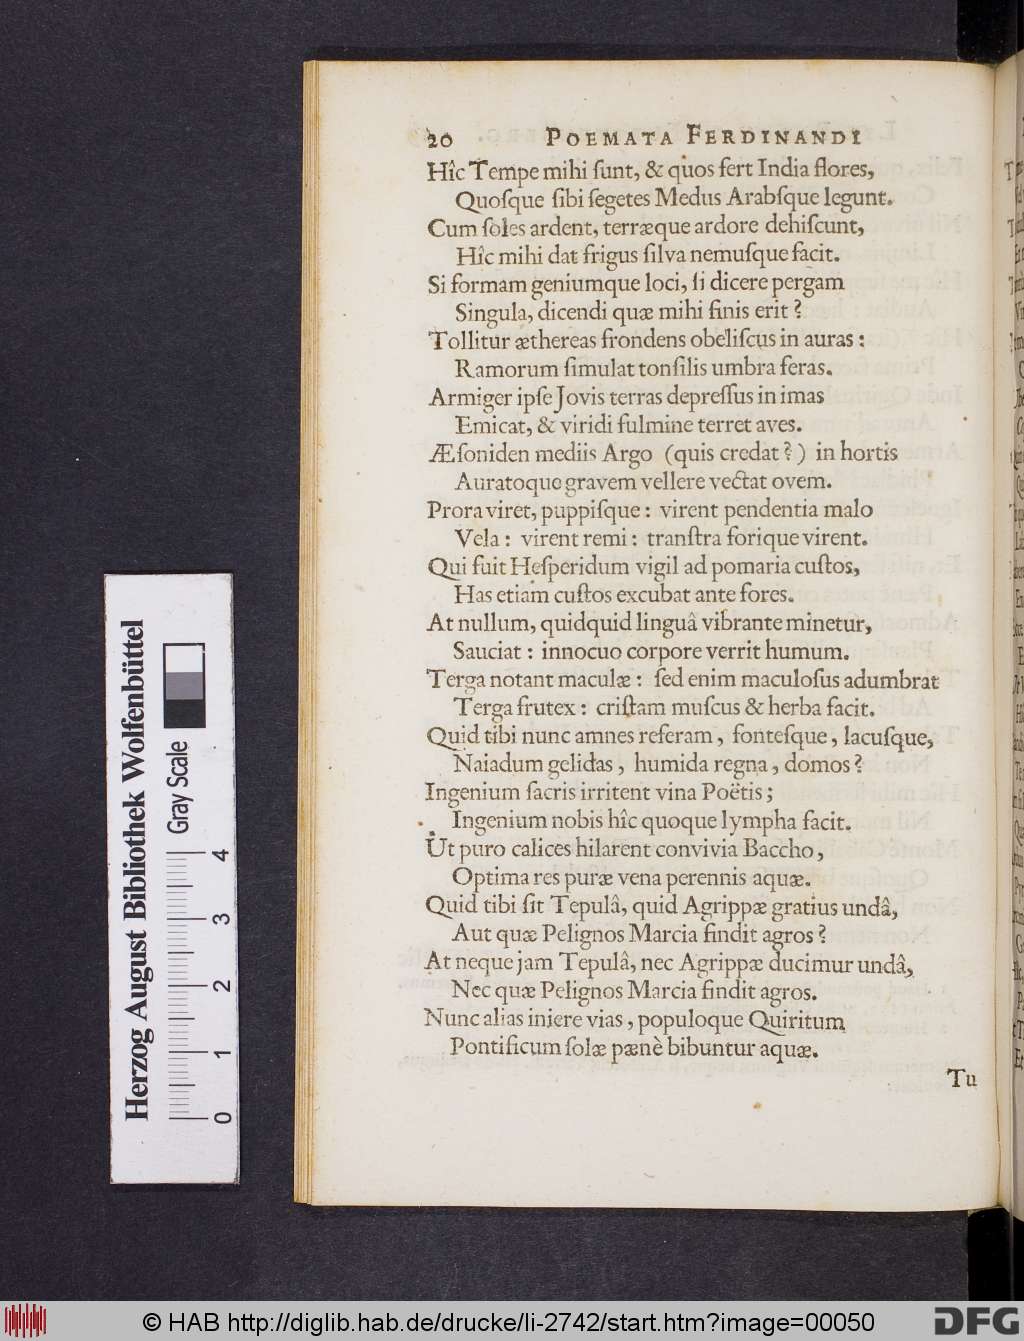 20 POEMATA FERDINANDI
Hîc Tempe mihi ſunt, & quos fert India flores,
Quoſque ſibi ſegetes Medus Arabſque legunt.
Cum ſoles ardent, terræque ardore dehiſcunt,
Hîc mihi dat frigus ſilva nemuſque facit.
Si formam geniumque loci, ſi dicere pergam
Singula, dicendi quæ mihi finis erit?
Tollitur æthereas frondens obeliſcus in auras:
Ramorum ſimulat tonſilis umbra feras.
Armiger ipſe Jovis terras depreſſus in imas
Emicat, & viridi fulmine terret aves.
Æſoniden mediis Argo (quis credat?) in hortis
Auratoque gravem vellere vectat ovem.
Prora viret, puppiſque: virent pendentia malo
Vela: virent remi: tranſtra forique virent.
Qui fuit Heſperidum vigil ad pomaria cuſtos,
Has etiam cuſtos excubat ante fores.
At nullum, quidquid linguâ vibrante minetur,
Sauciat: innocuo corpore verrit humum.
Terga notant maculæ: ſed enim maculoſus adumbrat
Terga frutex: criſtam muſcus & herba facit.
Quid tibi nunc amnes referam, fonteſque, lacuſque,
Naiadum gelidas, humida regna, domos?
Ingenium ſacris irritent vina Poëtis;
Ingenium nobis hîc quoque lympha facit.
Ut puro calices hilarent convivia Baccho,
Optima res puræ vena perennis aquæ.
Quid tibi ſit Tepulâ, quid Agrippæ gratius undâ,
Aut quæ Pelignos Marcia findit agros?
At neque jam Tepulâ, nec Agrippæ ducimur undâ,
Nec quæ Pelignos Marcia findit agros.
Nunc alias iniere vias, populoque Quiritum
Pontificum ſolæ pænè bibuntur aquæ.
Tu
Herzog August Bibliothek Wolfenbüttel
Gray Scale
0 1 2 3 4
© HAB http://diglib.hab.de/drucke/li-2742/start.htm?image=00050
DFG